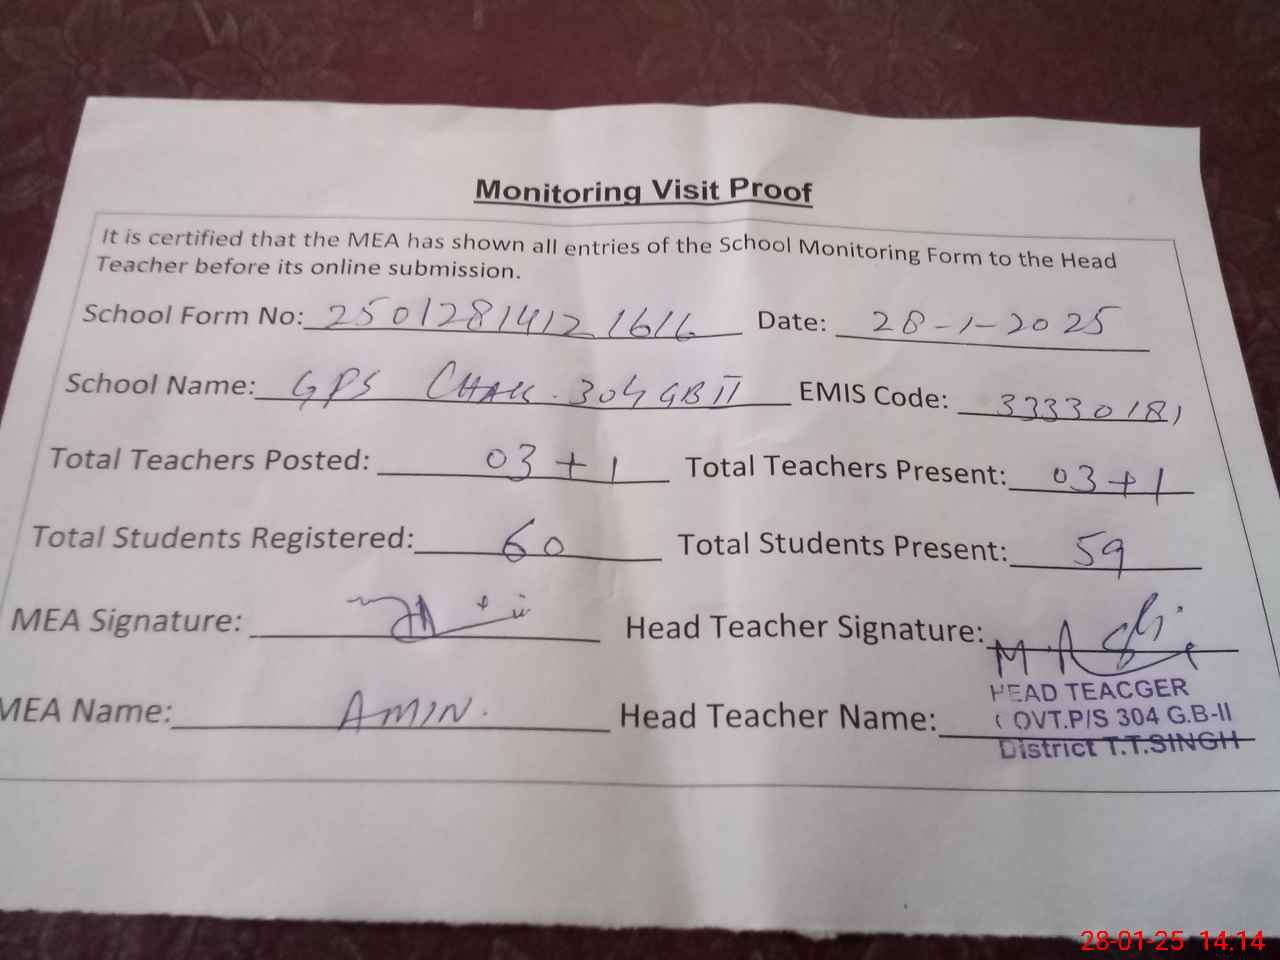 Monitoring Visit Proof
It is certified that the MEA has shown all entries of the School Monitoring Form to the Head
Teacher before its online submission.
School Form No: 2501281412 1616 Date: 28-1-2025
School Name: GPS CHAK. 304 GB II EMIS Code: 33330181
Total Teachers Posted: 03+1 Total Teachers Present: 03+1
Total Students Registered: 60 Total Students Present: 59
MEA Signature: Head Teacher Signature:
HEAD TEACGER
MEA Name: AMIN. Head Teacher Name:
OVT.P/S 304 G.B-II
District T.T.SINGH
28-01-25 14:14